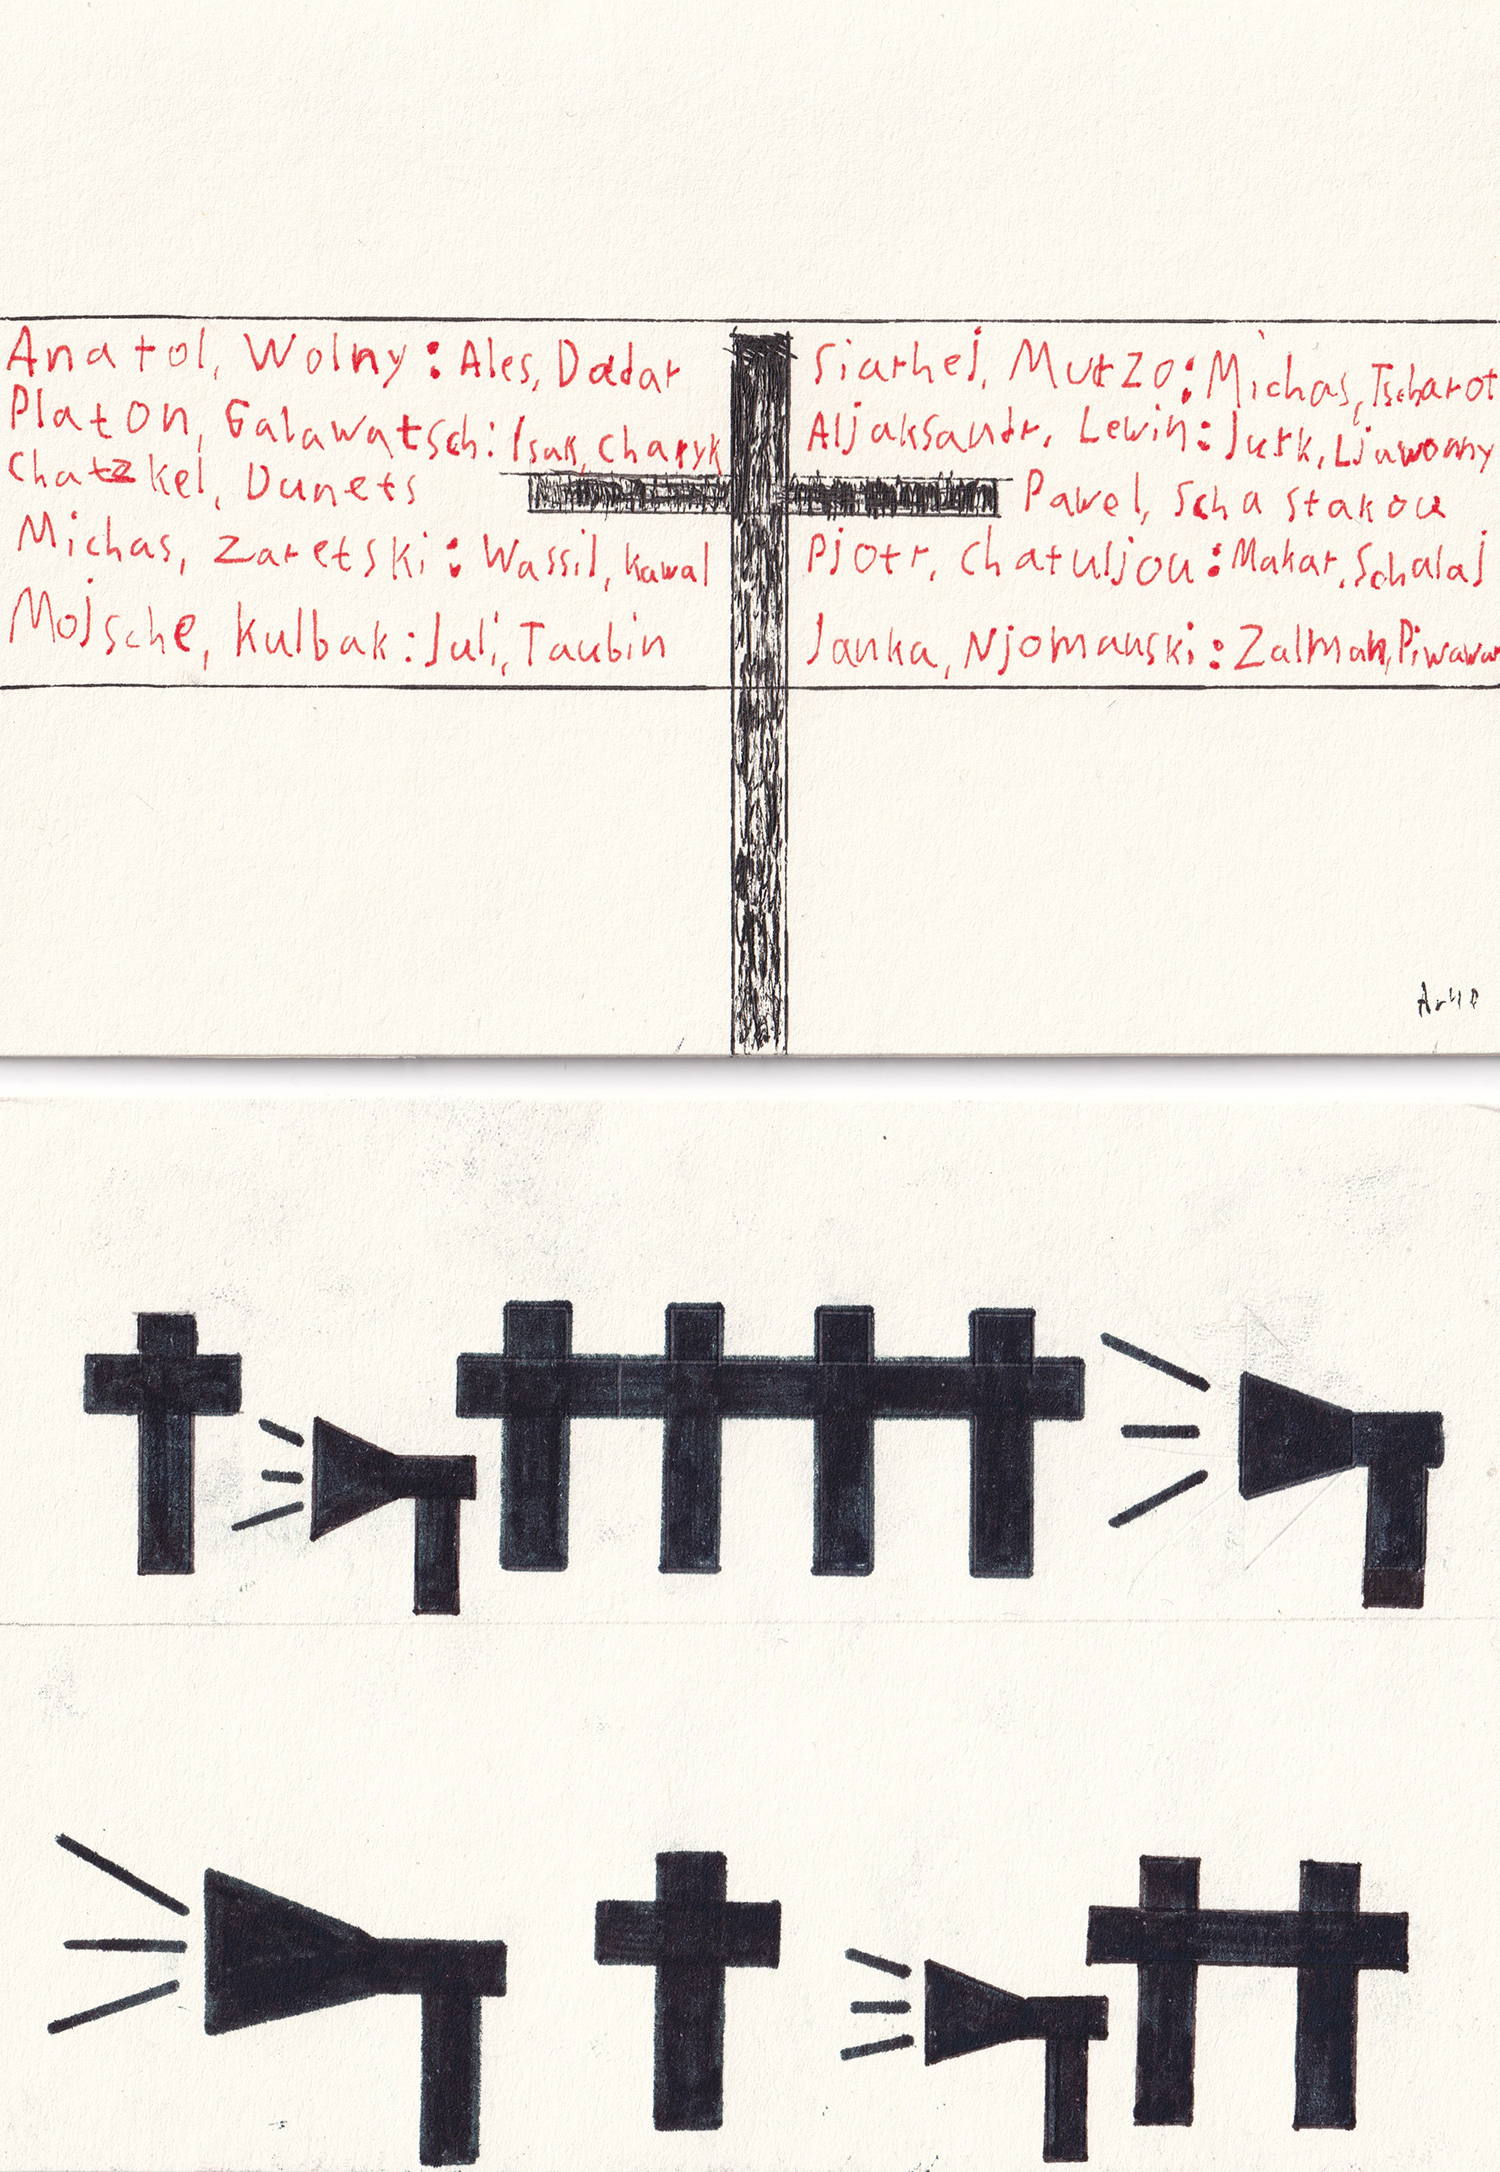 Anatol, Wolny : Ales, Dadar
Platon, Galawatsch : Isak, Charyk
Chatzkel, Dunets
Michas, Zaretski : Wassil, Kawal
Mojsche, Kulbak : Juli, Taubin
Siarhej, Murzo : Michas, Tscharot
Aljaksandr, Lewin : Jurk, Ljawonny
Pawel, Schastakou
Pjotr, Chatuljou : Makar, Schalaj
Janka, Njomanski : Zalman, Piwawar